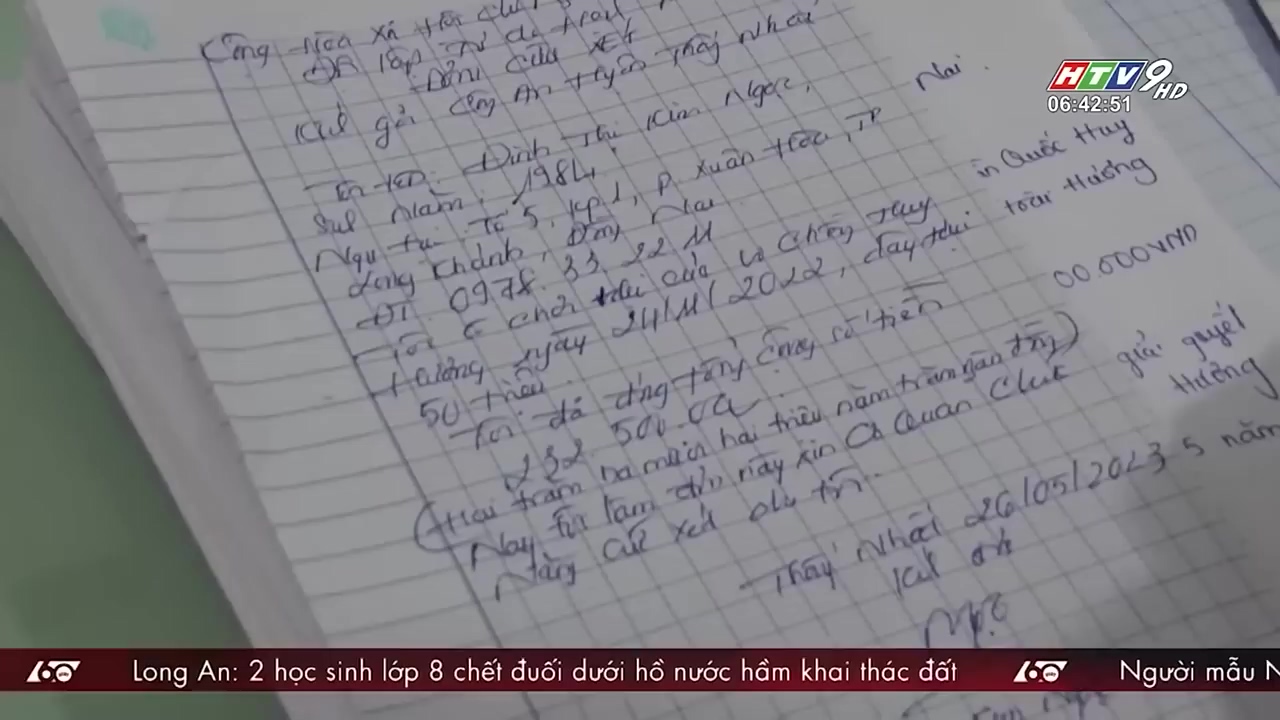 HTV9 HD
06:42:51
Cộng Hòa Xã Hội Chủ
Độc lập Tự do
Đơn Cứu Xét
Kính gởi Công An Huyện Thấy Nhất
Tên tôi: Đinh Thị Kim Ngọc,
Sinh Năm: 1984
Ngụ tại Tổ 5, Kp1, P Xuân Hòa, TP
Long Khánh, Đồng Nai
ĐT. 0978. 33 22 11
Tôi có chơi hụi của vợ chồng Huy
Hường ngày 24/11/2022, dây hụi
50 triệu
Tôi đã đóng tổng cộng số tiền
232. 500.00
(Hai trăm ba mươi hai triệu năm trăm ngàn đồng)
Nay tôi làm đơn này xin Cơ Quan Chức
Năng cứu xét cho tôi.
Nhất 26/05/2023
Ngọc
Nai.
Quốc Huy
Hương
00.000VND
giải quyết
Hường
5 năm
60 giây
Long An: 2 học sinh lớp 8 chết đuối dưới hồ nước hầm khai thác đất
60 giây
Người mẫu N